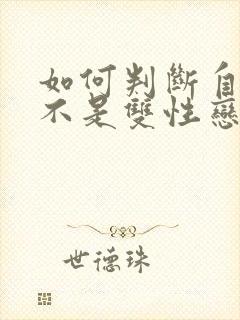 如何判斷自
不是雙性戀
世德珠